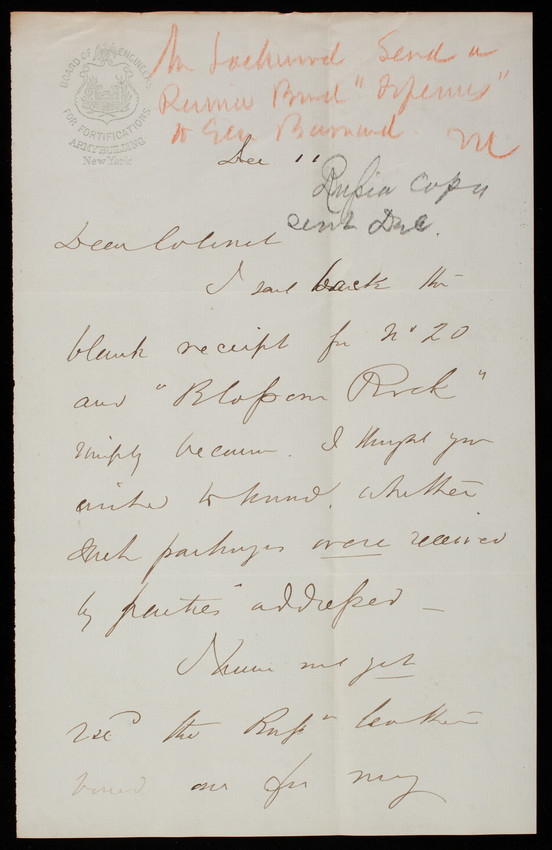 BOARD OF ENGINEERS
FOR FORTIFICATIONS
ARMY BUILDING
New York
Mr Lockwood Send a
Bound
to Gen Barnard
Dec 11
Russia copy
sent Dec.
Dear Colonel
I sent back the
blank receipt for No 20
and "Blossom Rock"
simply because I thought you
wished to know, whether
such packages were received
by parties addressed –
I have not yet
recd the Russn leather
bound one for my